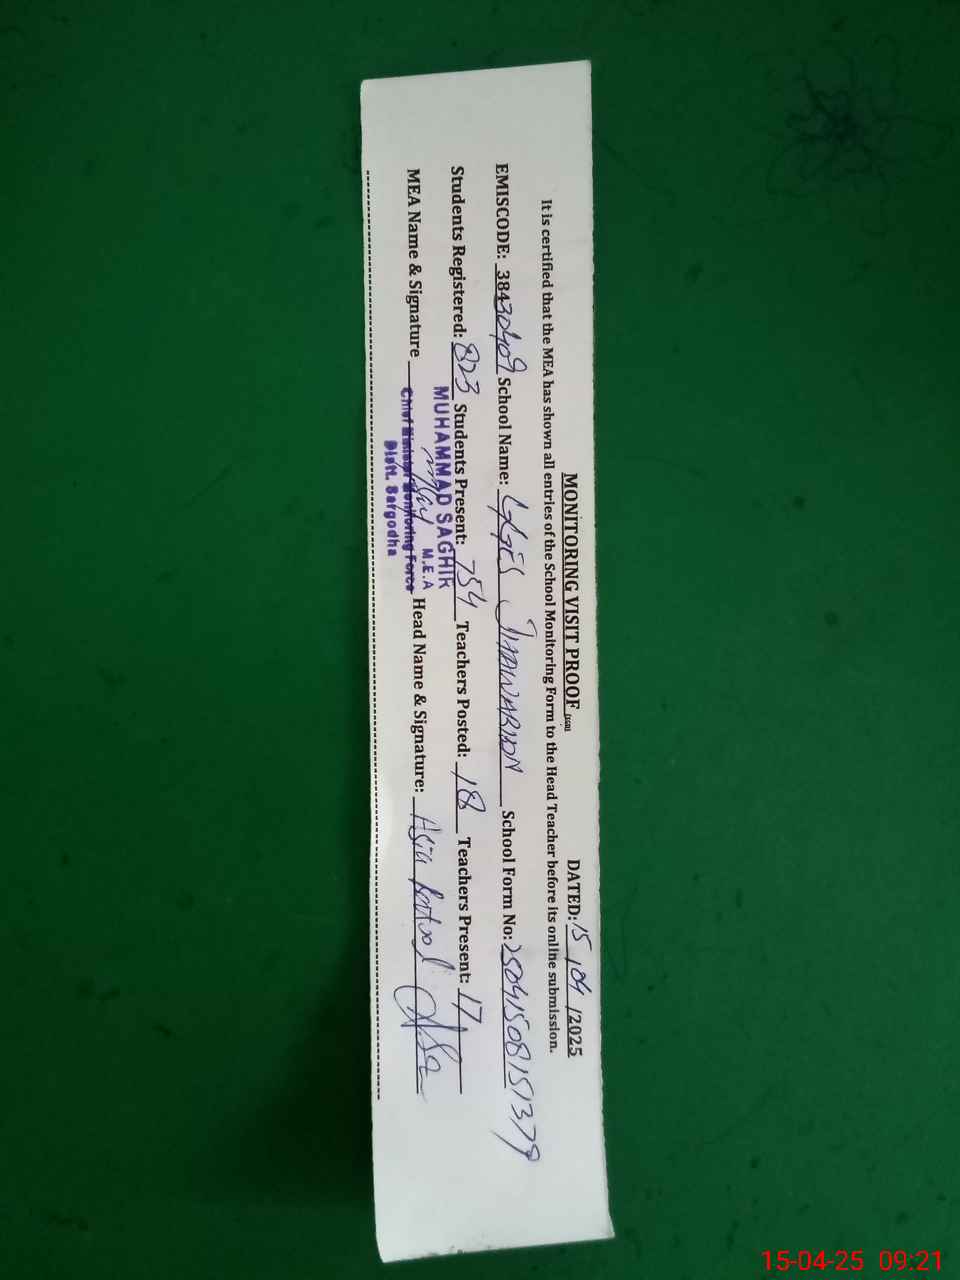 MONITORING VISIT PROOF (SGD) DATED: 15 /04 /2025
It is certified that the MEA has shown all entries of the School Monitoring Form to the Head Teacher before its online submission.
EMISCODE: 38430409 School Name: GGES JHAWARIAN School Form No: 25041508151379
Students Registered: 823 Students Present: 754 Teachers Posted: 18 Teachers Present: 17
MUHAMMAD SAGHIR
M.E.A
MEA Name & Signature Chief Minister Monitoring Force Head Name & Signature: Asia Batool
Distt. Sargodha
15-04-25 09:21